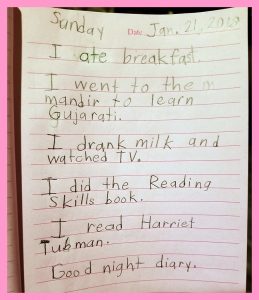 Sunday Date Jan. 21, 2018
I ate breakfast.
I went to the m
mandir to learn
Gujarati.
I drank milk and
watched TV.
I did the Reading
Skills book.
I read Harriet
Tubman.
Good night diary.